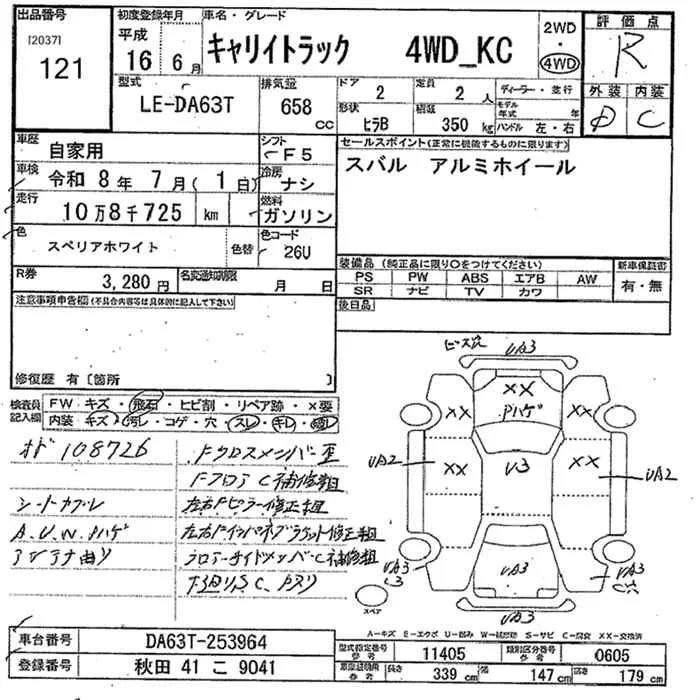 出品番号
[2037]
121
初度登録年月
平成
16年 6月
車名・グレード
キャリイトラック 4WD_KC
2WD
・
4WD
評価点
R
外装 内装
D C
型式
LE-DA63T
排気量
658 cc
ドア
2
定員
2 人
形状
ヒラB
積載
350 kg
ディーラー・並行
モデル年式 年
ハンドル 左・右
車歴
自家用
シフト
F5
車検
令和 8年 7月 (1日)
冷房
ナシ
走行
10万8千725 km
燃料
ガソリン
色
スペリアホワイト
色替
色コード
26U
R券
3,280円
名変通知期限
月 日
セールスポイント(正常に機能するものに限ります)
スバル アルミホイール
装備品(純正品に限り〇をつけてください)
PS PW ABS エアB AW
SR ナビ TV カワ
新車保証書
有・無
後日品
注意事項申告欄(不具合内容等は具体的に記入して下さい)
修復歴 有〔箇所 〕
検査員記入欄
FW キズ・飛石・ヒビ割・リペア跡・×要
内装 キズ・汚レ・コゲ・穴・スレ・キレ
オド 108726
シートカブレ
A.U.W.Pハゲ
アンテナ曲リ
Fクロスメンバー歪
FフロアC補修粗
左右Fピラー修正粗
左右Fインパネブラケット修正粗
フロアーサイドメンバーC補修粗
下廻リS.C、Pヌリ
ビス穴
UA3
XX
Pハゲ
XX XX
UA2 XX U3 XX UA2
UA3
UA3
スペア
UA3
A－キズ E－エクボ U－凹み W－補修跡 S－サビ C－腐食 XX－交換済
車台番号
DA63T-253964
登録番号
秋田 41 こ 9041
型式指定番号
参考
11405
類別区分番号
参考
0605
車庫証明用
参考
長さ 339 cm 幅 147 cm 高さ 179 cm